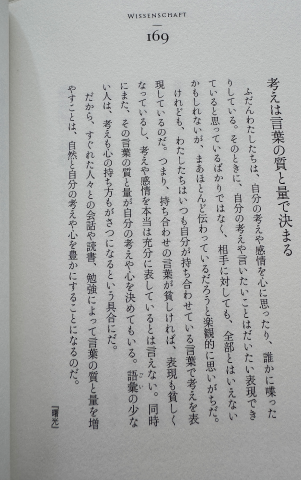 WISSENSCHAFT
169
考えは言葉の質と量で決まる
ふだんわたしたちは、自分の考えや感情を心に思ったり、誰かに喋った
りしている。そのときに、自分の考えや言いたいことはだいたい表現でき
ていると思っているばかりではなく、相手に対しても、全部とはいえない
かもしれないが、まあほとんど伝わっているだろうと楽観的に思いがちだ。
けれども、わたしたちはいつも自分が持ち合わせている言葉で考えを表
現しているのだ。つまり、持ち合わせの言葉が貧しければ、表現も貧しく
なっているし、考えや感情を本当は充分に表しているとは言えない。同時
にまた、その言葉の質と量が自分の考えや心を決めてもいる。語彙の少な
い人は、考えも心の持ち方もがさつになるという具合にだ。
だから、すぐれた人々との会話や読書、勉強によって言葉の質と量を増
やすことは、自然と自分の考えや心を豊かにすることになるのだ。
『曙光』